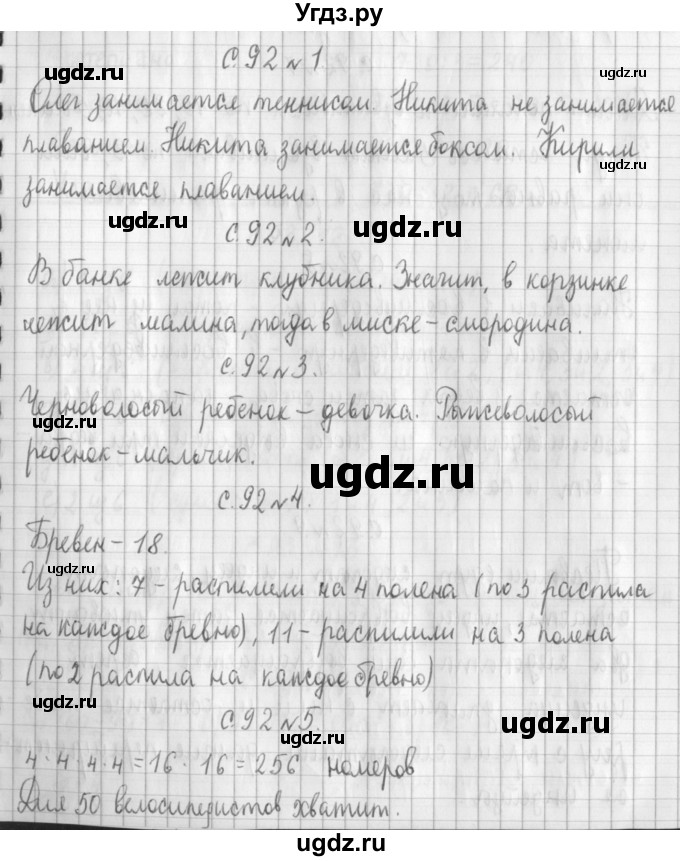 Угдз.ру
с.92 № 1.
ugdz.ru
ugdz.ru
Олег занимается теннисом. Никита не занимается
плаванием. Никита занимается боксом. Кирилл
ugdz.ru
занимается плаванием.
ugdz.ru
ugdz.ru
с.92 № 2.
В банке лежит клубника. Значит, в корзинке
лежит малина, тогда в миске – смородина.
с.92 № 3.
ugdz.ru
Черноволосый ребенок – девочка. Рыжеволосый
ugdz.ru
ребенок – мальчик.
ugdz.ru
ugdz.ru
с.92 № 4.
Бревен – 18.
ugdz.ru
Из них: 7 – распилили на 4 полена (по 3 распила
на каждое бревно), 11 – распилили на 3 полена
(по 2 распила на каждое бревно)
ugdz.ru
с.92 № 5.
ugdz.ru
4·4·4·4=16·16=256 номеров
Для 50 велосипедистов хватит.
ugdz.ru
ugdz.ru